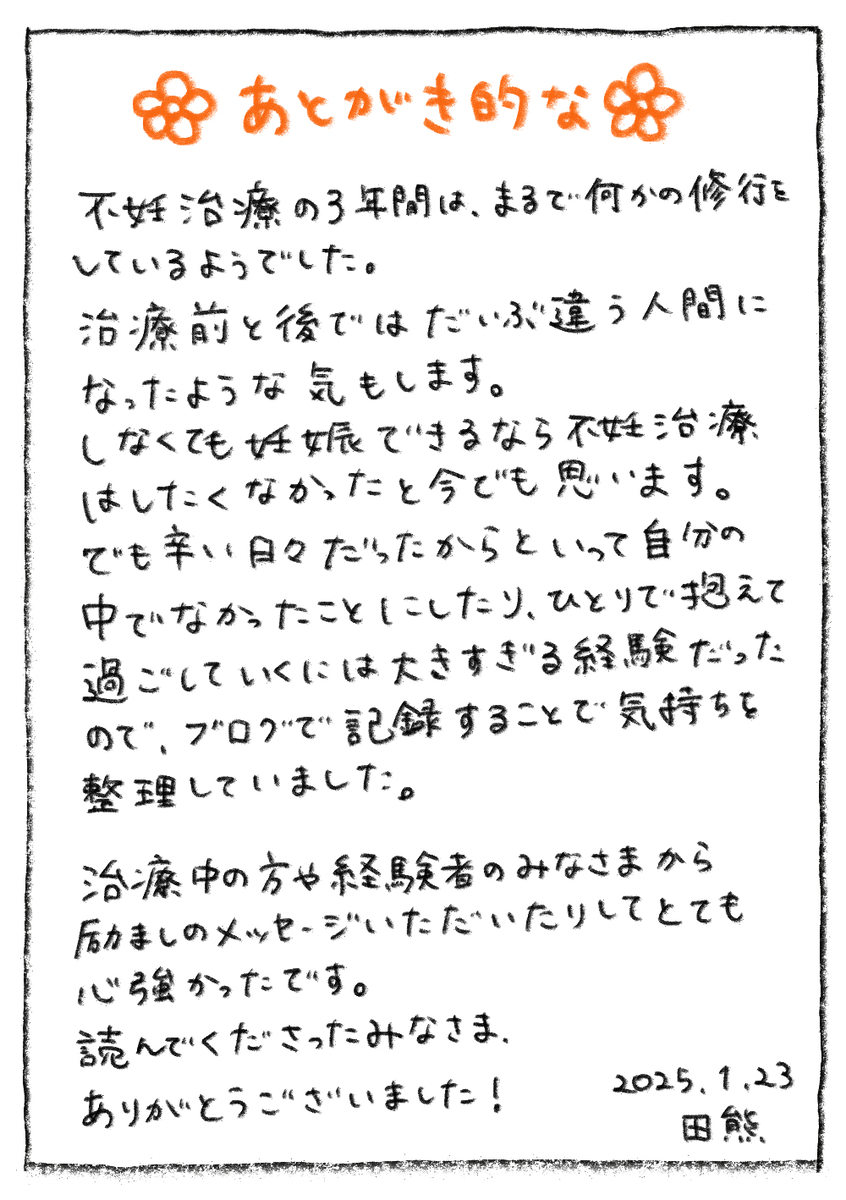 あとがき的な
不妊治療の3年間は、まるで何かの修行を
しているようでした。
治療前と後ではだいぶ違う人間に
なったような気もします。
しなくても妊娠できるなら不妊治療
はしたくなかったと今でも思います。
でも辛い日々だったからといって自分の
中でなかったことにしたり、ひとりで抱えて
過ごしていくには大きすぎる経験だった
ので、ブログで記録することで気持ちを
整理していました。
治療中の方や経験者のみなさまから
励ましのメッセージいただいたりしてとても
心強かったです。
読んでくださったみなさま、
ありがとうございました！
2025.1.23
田熊